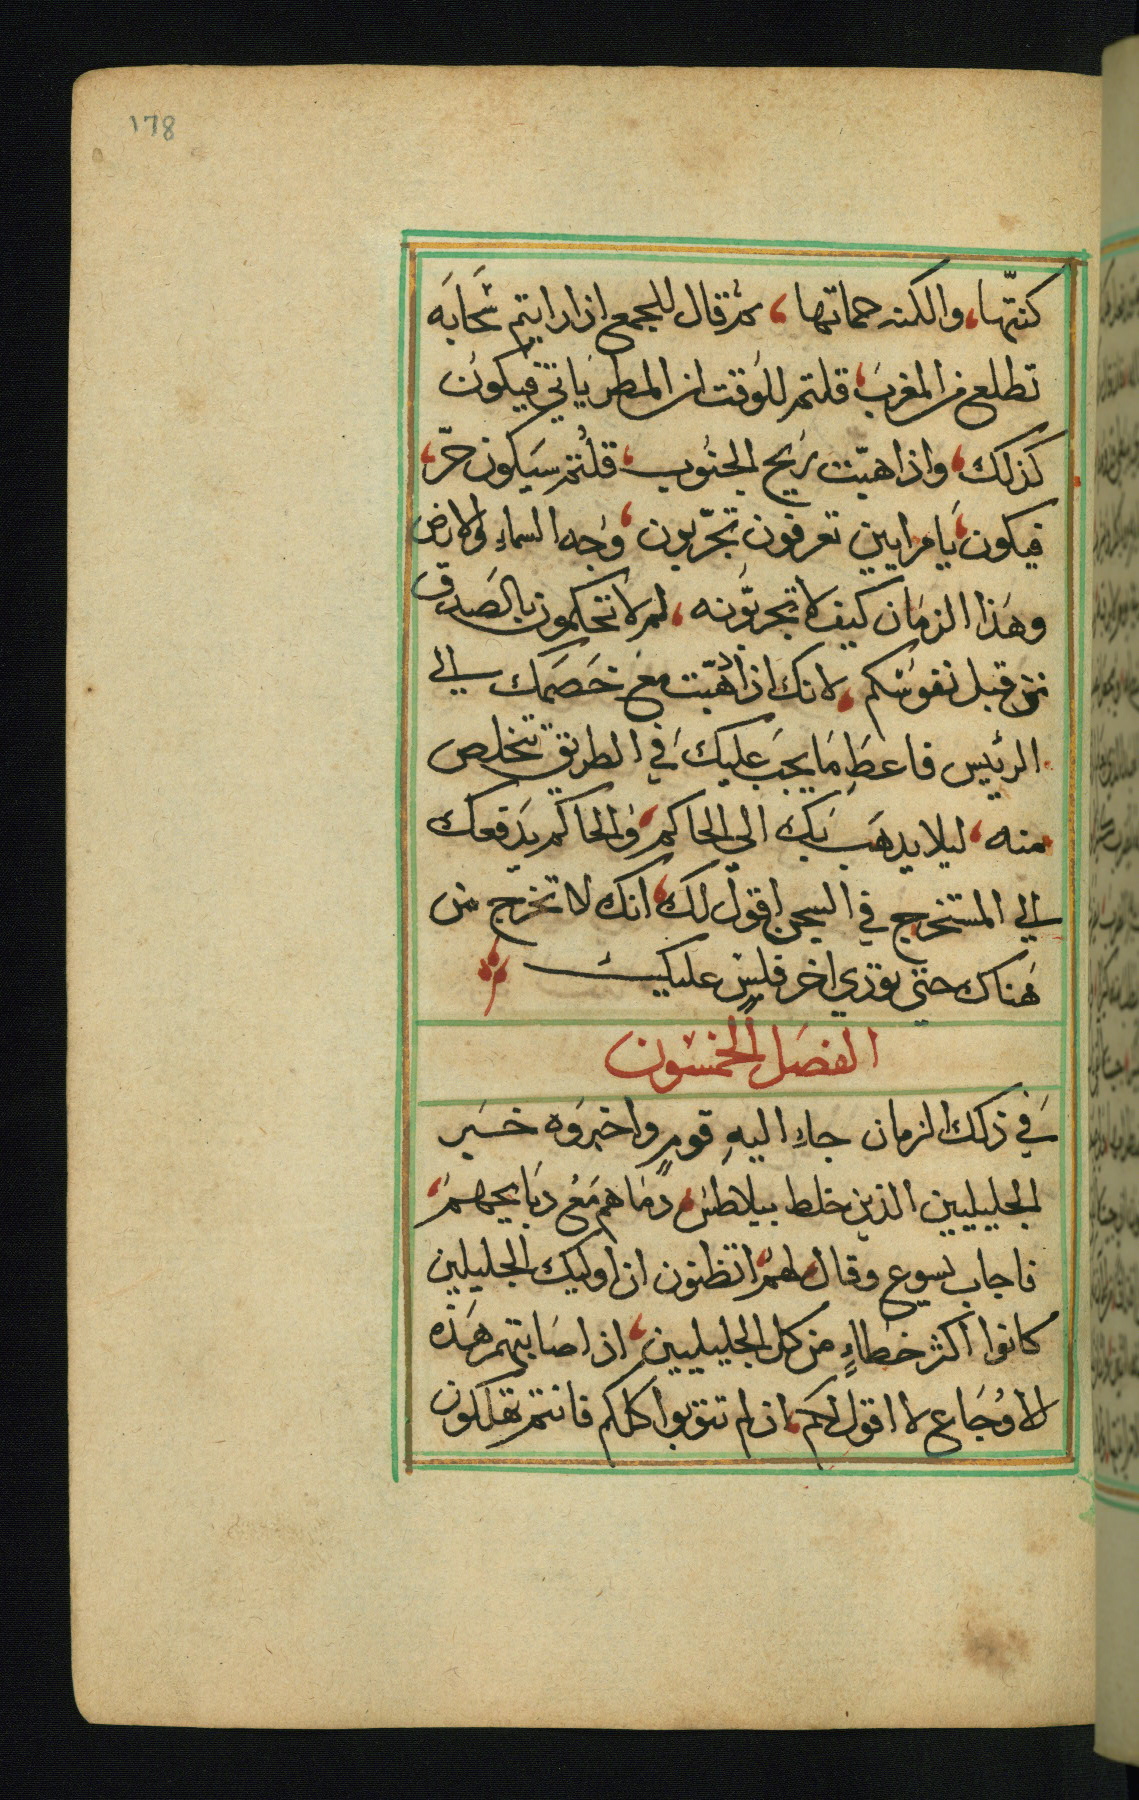 178
كنتّها، والكنه حماتها، ثم قال للجمع اذا رايتم سَحَابَه
تطلع من المغرب، قلتم للوقت ان المطر ياتي فيكون
كذلك، واذا هبّت ريح الجنوب، قلتم سيكون حرّ،
فيكون، يا مرايين تعرفون تجرّبون، وجه السماءِ والارض
وهَذا الزمان كيف لا تجربَونه، لم لا تحكمون بالصَدق
من قبل نفوسكم، لانك اذا ذهبت مع خَصَمك الي
الرئيس فاعطِ مَا يجب عليك في الطريق تتخلص
منه، ليلا يدهَب بك الي الحاكم، والحاكم يدفعك
الي المستخرج في السجن اقول لك، انك لا تخرج من
هُناك حتى توذي اخر فليسٍ عليك
الفصَل الخمسون
في ذلك الزمان جاءِ اليهِ قومٍ واخبروَه خبر
الجليليين الذين خلط بيلاطس، دمَاهم مَع دبَايحهم،
فاجاب يسوع وقال لهم، اتظنون ان اوليك الجليلين
كانوا اكثر خطاءٍ من كل الجليليين، اذ اصَابتهم هَذه
الاوُجَاع لا اقول لكم، ان لم تتوبوا كلكم فانتم تهلكون